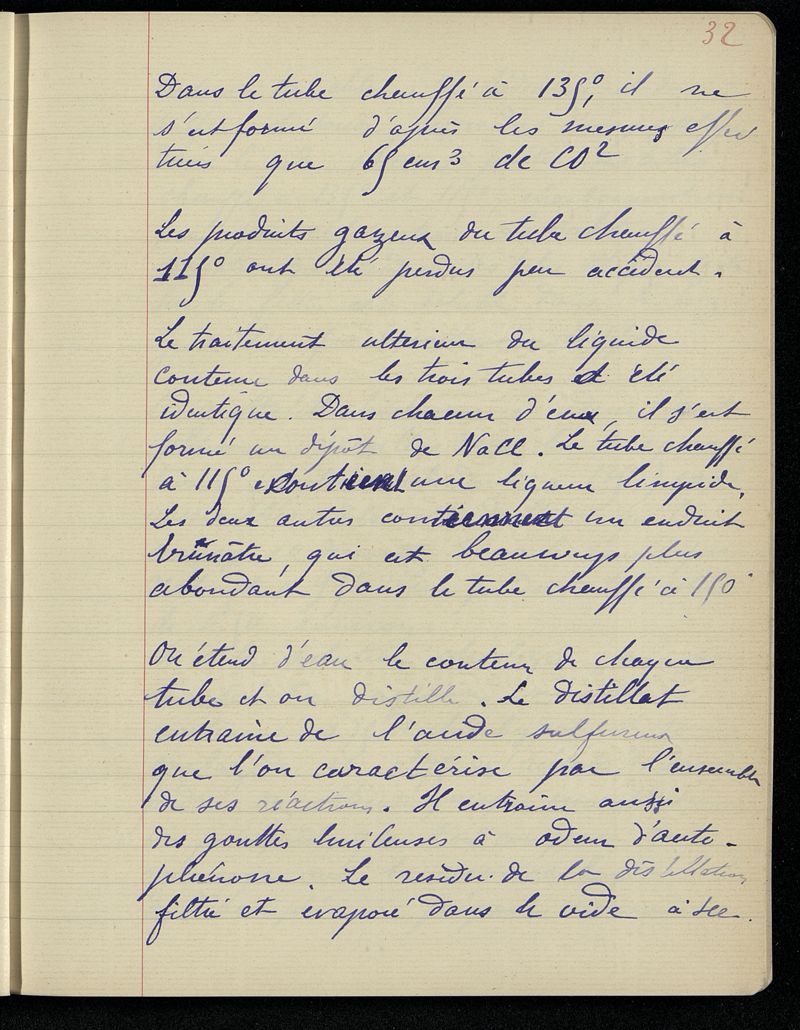 32
Dans le tube chauffé à 135°, il ne
s'est formé d'après les mesures effec
tuées que 65 cm3 de CO2
Les produits gazeux du tube chauffé à
115° ont été perdus par accident.
Le traitement ultérieur du liquide
contenu dans les trois tubes a été
identique. Dans chacun d'eux, il s'est
formé un dépôt de NaCl. Le tube chauffé
à 115° contient une liqueur limpide.
Les deux autres contiennent un enduit
brunâtre, qui est beaucoup plus
abondant dans le tube chauffé à 150°
On étend d'eau le contenu de chaque
tube et on distille. Le distillat
entraine de l'acide sulfureux
que l'on caractérise par l'ensemble
de ses réactions. Il entraine aussi
des gouttes huileuses à odeur d'acéto-
phénone. Le résidu de la distillation
filtré et évaporé dans le vide à sec.